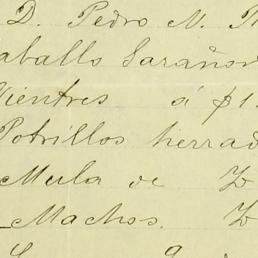 D. Pedro N.
aballo Sarañon
Vientres á $1
Potrillos herrad
Mula de
Machos.